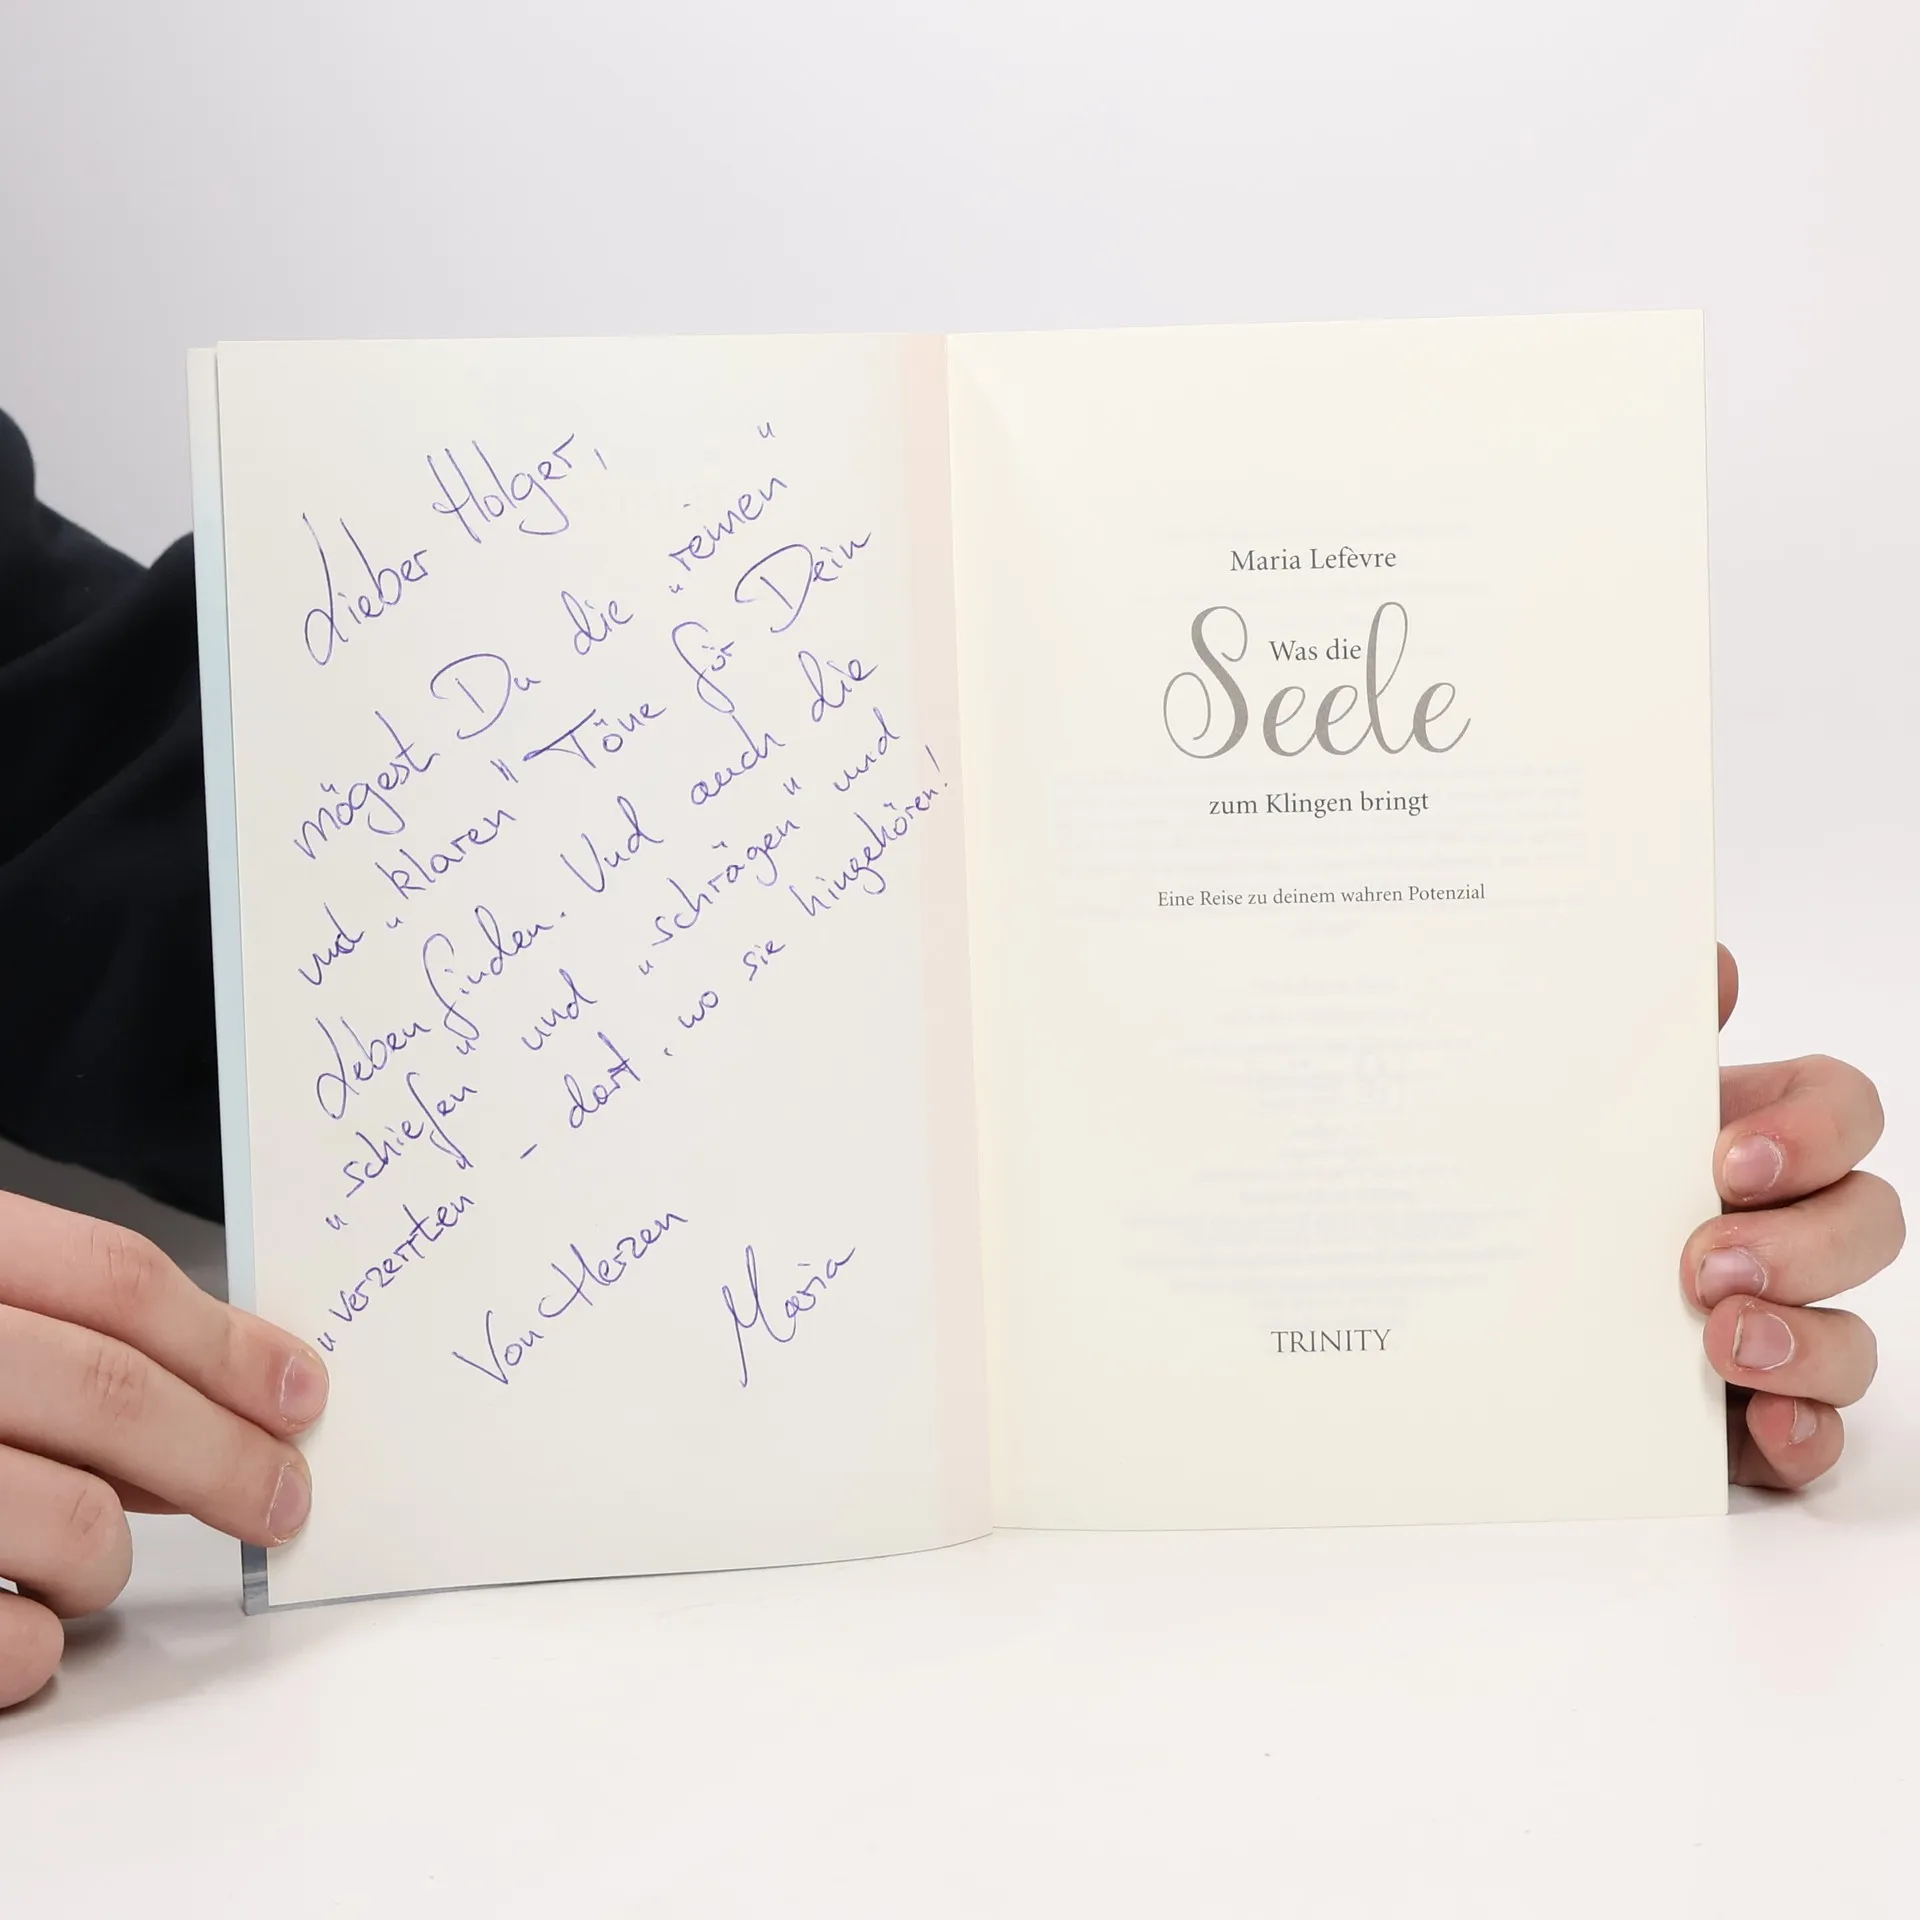 Lieber Holger,
mögest Du die „reinen"
und „klaren" Töne für Dein
Leben finden. Und auch die
„schiefen" und „schrägen" und
„verzerrten" – dort, wo sie hingehören!
Von Herzen
Maria
Maria Lefèvre
Was die
Seele
zum Klingen bringt
Eine Reise zu deinem wahren Potenzial
TRINITY